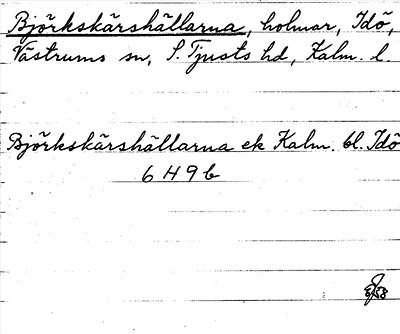 Björkskärshällarna, holmar, Idö,
Västrums sn, S. Tjusts hd, Kalm. l.
Björkskärshällarna ek Kalm. bl. Idö
6 H 9 b